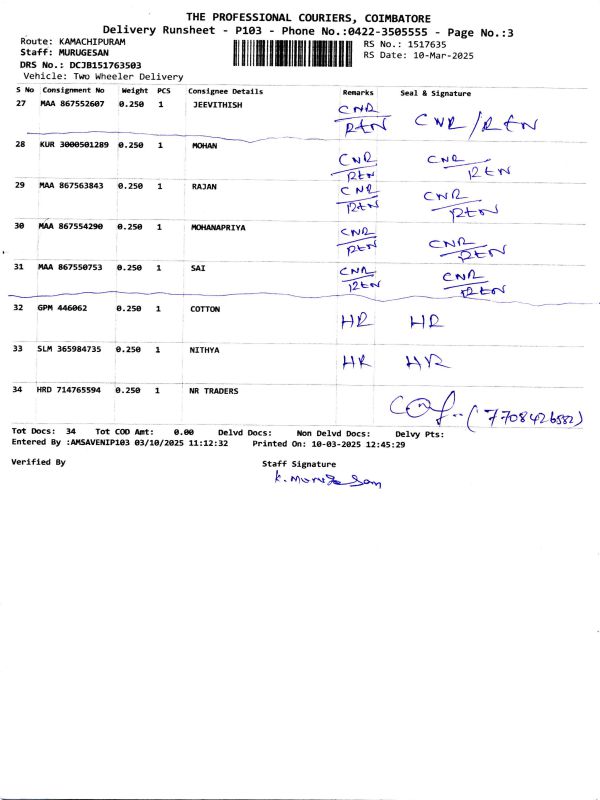 THE PROFESSIONAL COURIERS, COIMBATORE
Delivery Runsheet - P103 - Phone No.:0422-3505555 - Page No.:3
Route: KAMACHIPURAM
RS No.: 1517635
Staff: MURUGESAN
RS Date: 10-Mar-2025
DRS No.: DCJB151763503
Vehicle: Two Wheeler Delivery
S No Consignment No Weight PCS Consignee Details Remarks Seal & Signature
27 MAA 867552607 0.250 1 JEEVITHISH CNR/RTN CNR/RTN
28 KUR 3000501289 0.250 1 MOHAN CNR/RTN CNR/RTN
29 MAA 867563843 0.250 1 RAJAN CNR/RTN CNR/RTN
30 MAA 867554290 0.250 1 MOHANAPRIYA CNR/RTN CNR/RTN
31 MAA 867550753 0.250 1 SAI CNR/RTN CNR/RTN
32 GPM 446062 0.250 1 COTTON HR HR
33 SLM 365984735 0.250 1 NITHYA HR HR
34 HRD 714765594 0.250 1 NR TRADERS (7708426582)
Tot Docs: 34 Tot COD Amt: 0.00 Delvd Docs: Non Delvd Docs: Delvy Pts:
Entered By :AMSAVENIP103 03/10/2025 11:12:32 Printed On: 10-03-2025 12:45:29
Verified By Staff Signature